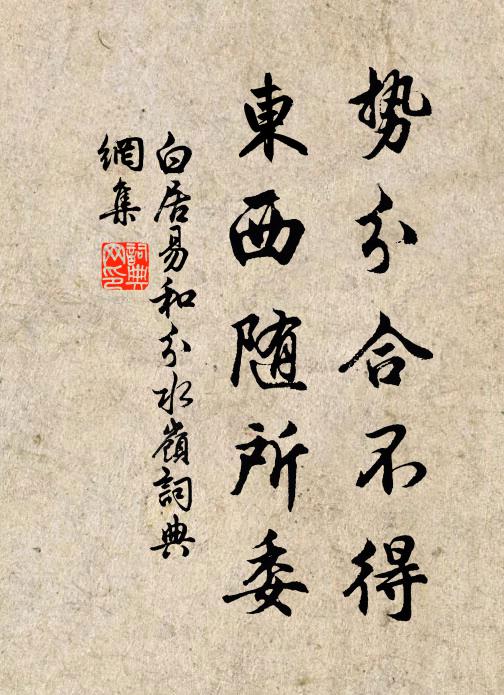 势分合不得
東西随所委
白居易和分水嶺詞典
網集
詞典
网印